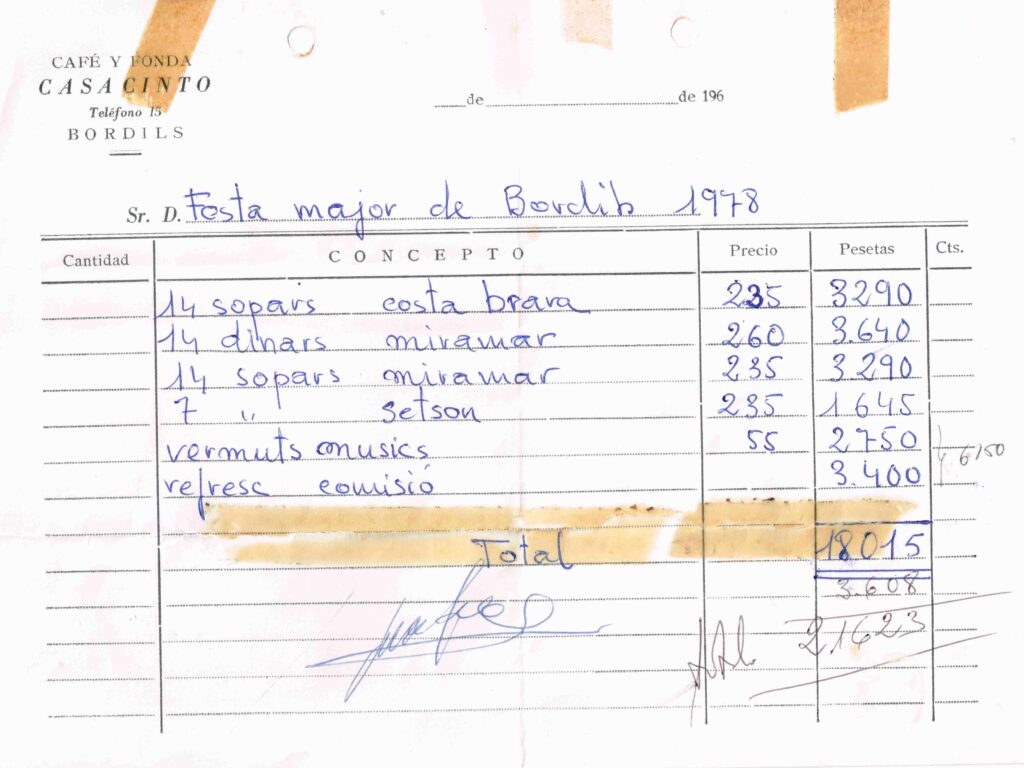 CAFÉ Y FONDA
CASA CINTO
Teléfono 15
BORDILS
de de 196
Sr. D. Festa major de Bordils 1978
Cantidad CONCEPTO Precio Pesetas Cts.
14 sopars costa brava 235 3290
14 dinars miramar 260 3.640
14 sopars miramar 235 3.290
7 " Setson 235 1645
vermuts musics 55 2750
refresc comisió 3.400
6150
Total 18015
3.608
21623